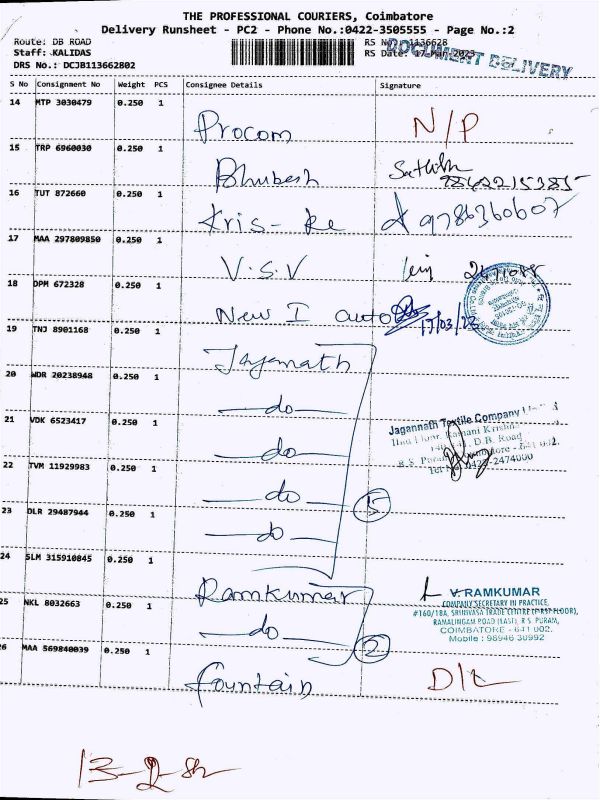 THE PROFESSIONAL COURIERS, Coimbatore
Delivery Runsheet - PC2 - Phone No.:0422-3505555 - Page No.:2
Route: DB ROAD RS No.: 1136628
Staff: KALIDAS RS Date: 17-Mar-2023
DRS No.: DCJB113662802
DOCUMENT DELIVERY
S No Consignment No Weight PCS Consignee Details Signature
14 MTP 3030479 0.250 1 Procom N/P
15 TRP 6960030 0.250 1 Bhubesh Sathish
16 TUT 872660 0.250 1 Kris-Re 9786360607
17 MAA 297809850 0.250 1 V.S.V
18 DPM 672328 0.250 1 New I auto 17/03/23
19 TNJ 8901168 0.250 1 Jaganath
20 WDR 20238948 0.250 1 do
21 VDK 6523417 0.250 1 do
Jagannath Textile Company
D.B. Road
22 TVM 11929983 0.250 1 do
0422-2474000
23 DLR 29487944 0.250 1 do 5
24 SLM 315910845 0.250 1 Ramkumar
V. RAMKUMAR
COMPANY SECRETARY IN PRACTICE,
#160/18A, SRINIVASA TRADE CENTRE (FIRST FLOOR),
RAMALINGAM ROAD (EAST), R.S. PURAM,
COIMBATORE - 641 002.
Mobile : 98946 30992
25 NKL 8032663 0.250 1 do 2
26 MAA 569840039 0.250 1 fountain D/L
13-2-